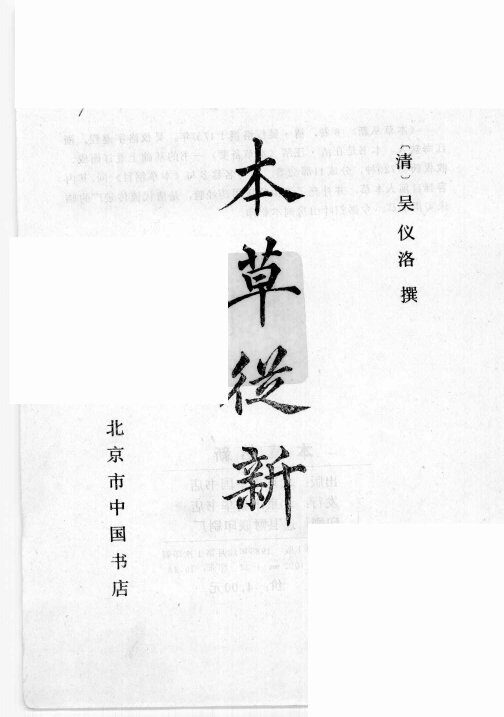 〔清〕吴仪洛 撰
本草從新
北京市中国书店